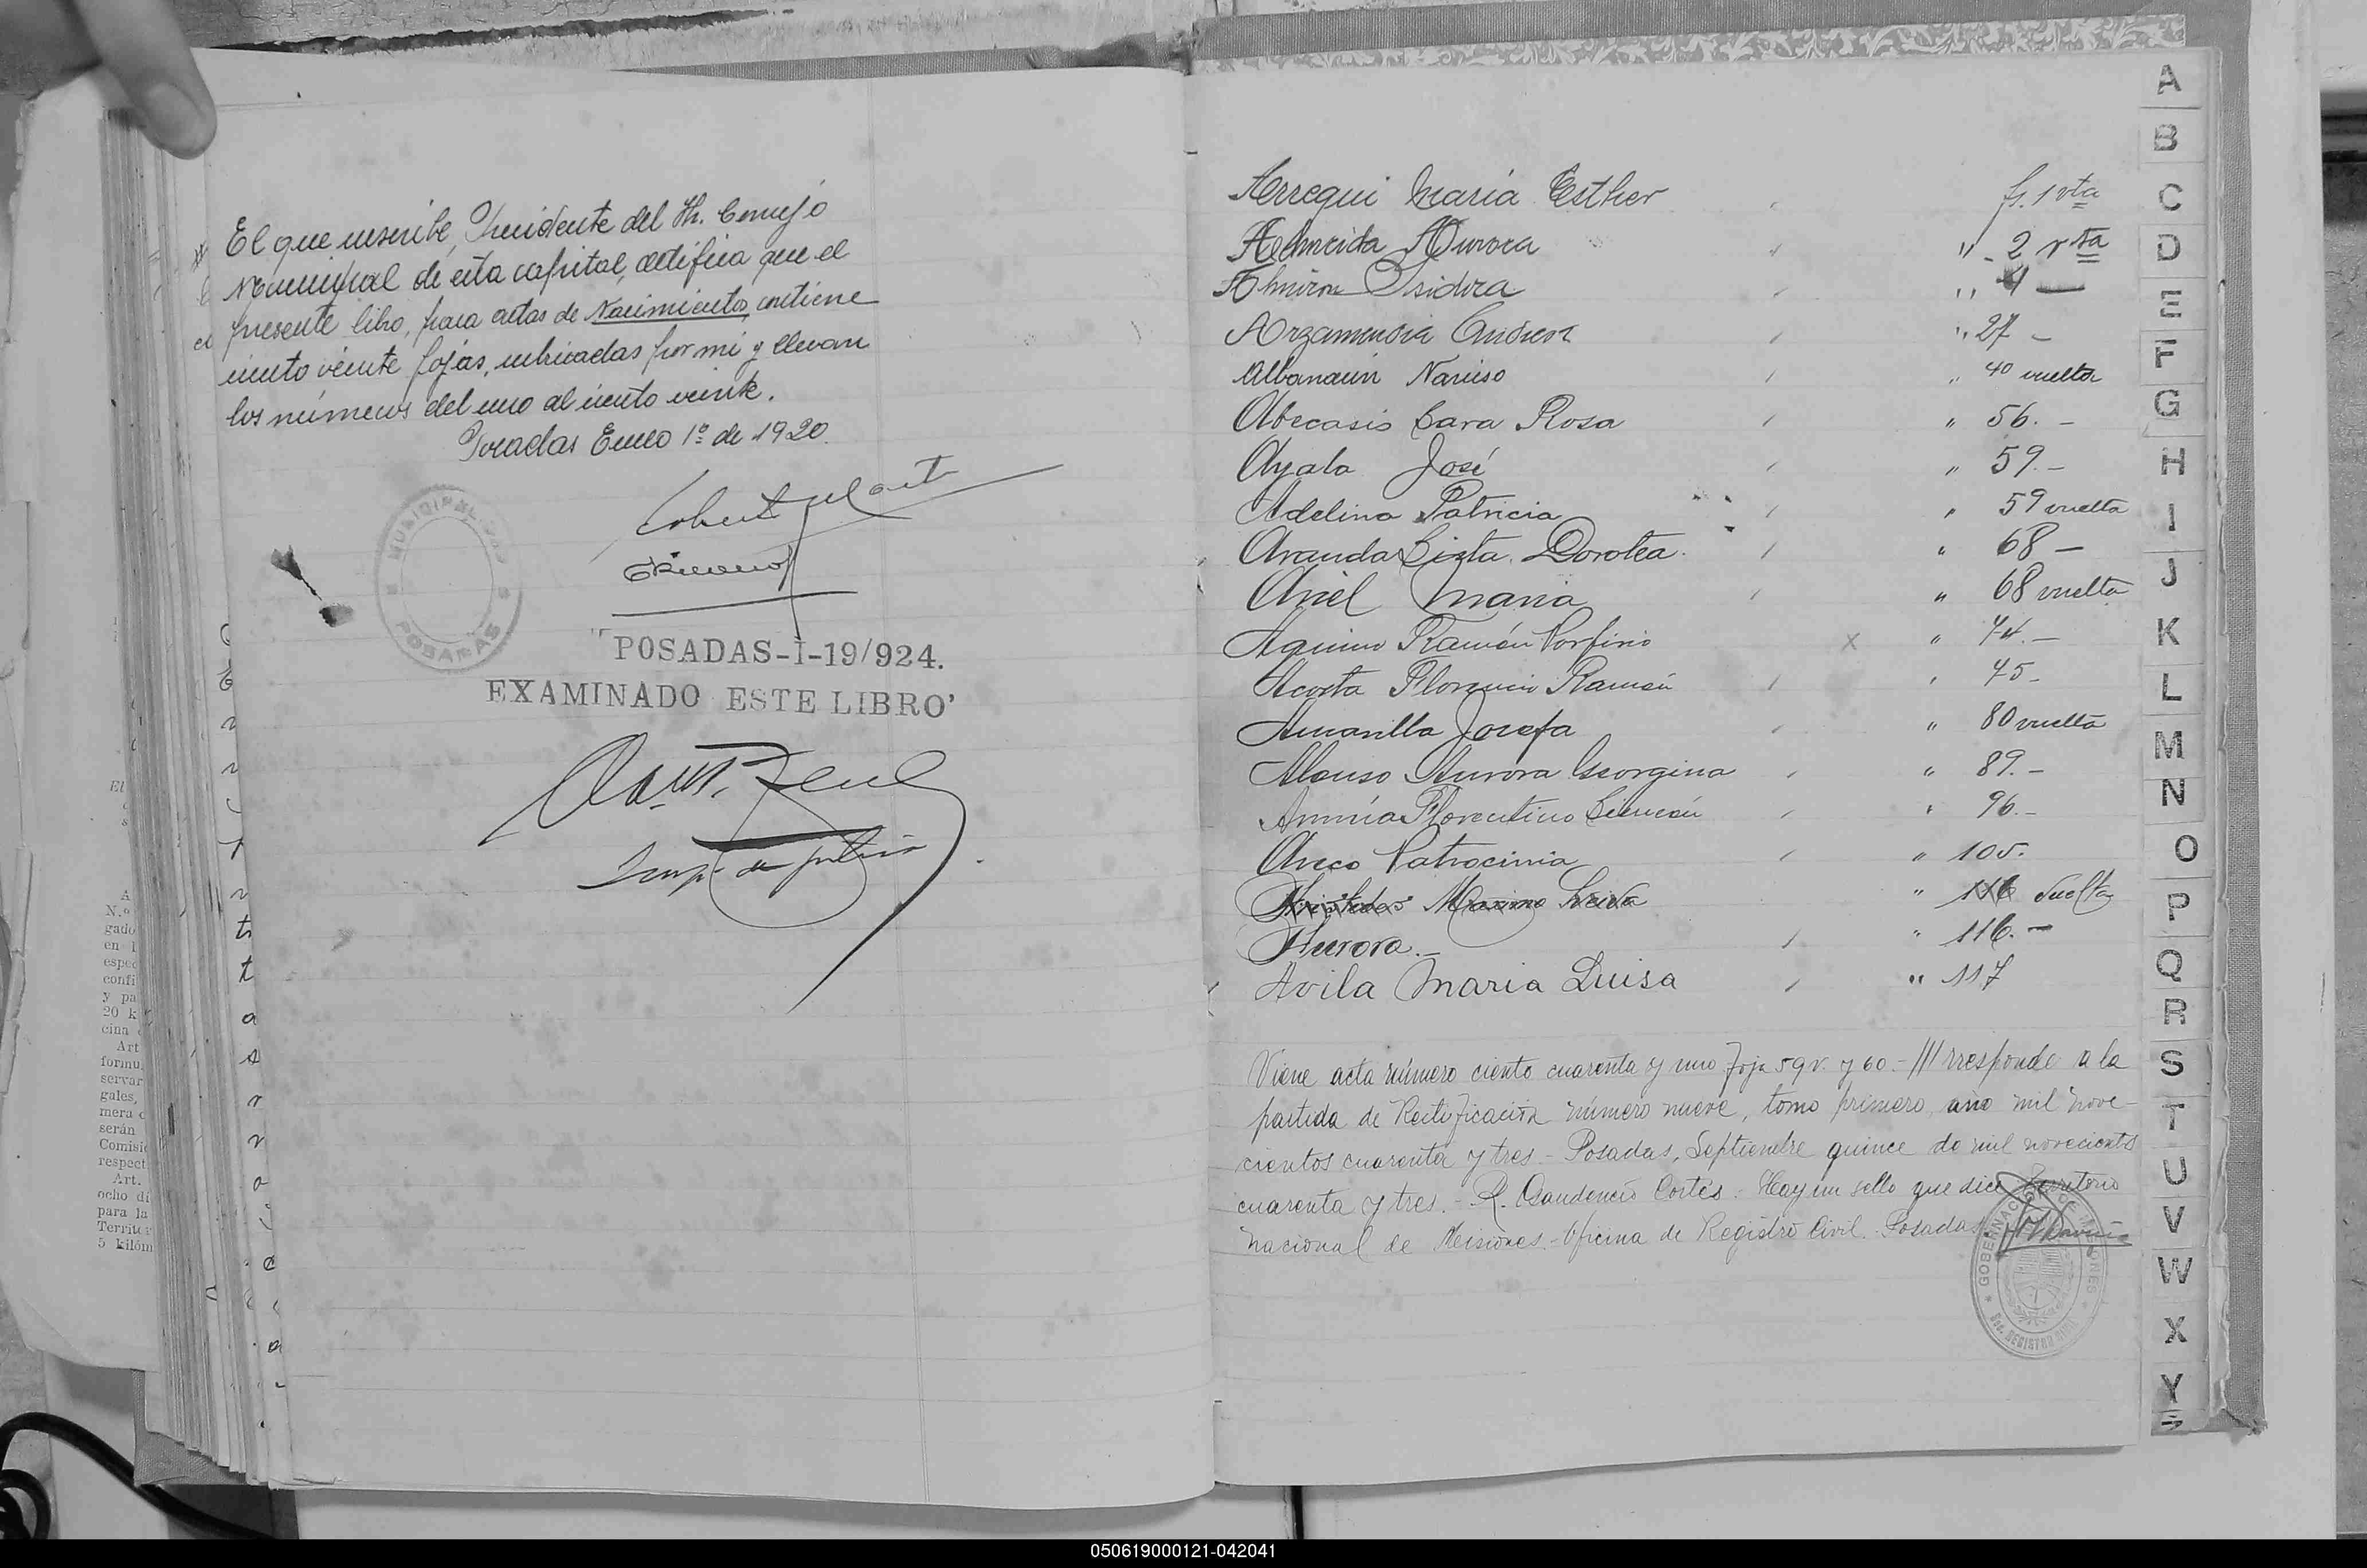 El que suscribe, Presidente del H. Consejo
Municipal de esta capital, certifica que el
presente libro, para actas de Nacimientos, contiene
ciento veinte fojas, rubricadas por mi y llevan
los números del uno al ciento veinte.
Posadas Enero 1º de 1920.
MUNICIPALIDAD
POSADAS
"POSADAS-I-19/924.
EXAMINADO ESTE LIBRO'
Insp. de
Arregui María Esther f. 1 vta
Almeida Aurora " - 2 vta
Almiron Isidora " 4 —
Arzamendia " 27 —
Albanaún Narciso " 40 vuelta
Abecasis Sara Rosa " 56. —
Ayala José " 59. —
Adelina Patricia " 59 vuelta
Aranda Sixta Dorotea " 68 —
Ariel María " 68 vuelta
Aquino Ramón Porfirio x " 74. —
Acosta Florencio Ramón " 75 -
Amarilla Josefa " 80 vuelta
Alonso Aurora Georgina " 89. —
Florentino Simeón " 96. —
Areco Patrocinia " 105.
Aristides Maximo " 116 vuelta
Aurora. — " 116. —
Avila Maria Luisa " 117
Viene acta número ciento cuarenta y uno foja 59v. y 60 - /// rresponde a la
partida de Rectificación número nueve, tomo primero, ano mil nove-
cientos cuarenta y tres - Posadas, Septiembre quince de mil novecientos
cuarenta y tres. - R. Gaudencio Cortés. Hay un sello que dice Territorio
nacional de Misiones. - Oficina de Registro Civil. Posadas
GOBERNACION DE MISIONES
A
B
C
D
E
F
G
H
I
J
K
L
M
N
O
P
Q
R
S
T
U
V
W
X
Y
El
A
N.º
gado
en l
espec
confi
y pa
20 k
cina
Art
formu
servar
gales,
mera c
serán
Comisi
respect
Art.
ocho dí
para la
Territor
5 kilóm
050619000121-042041